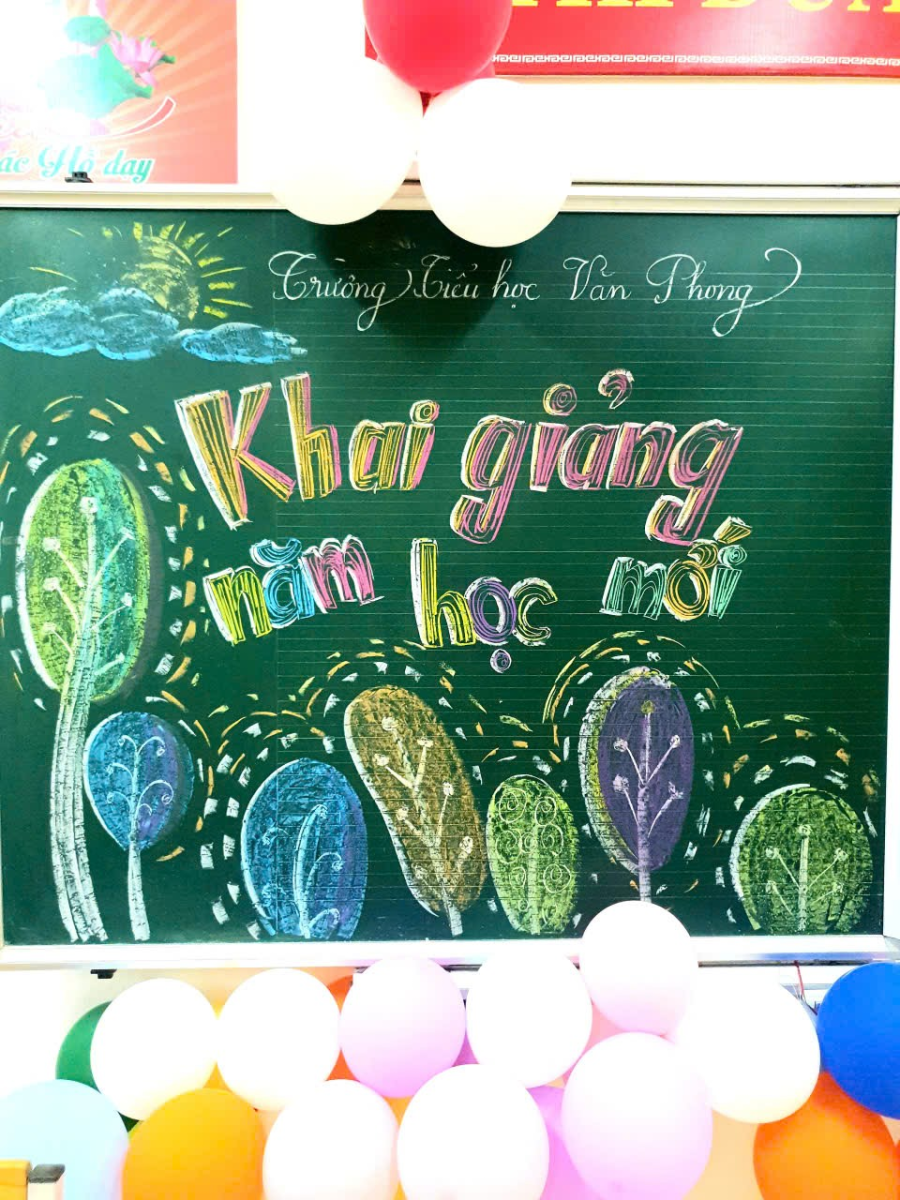 ác Hồ dạy
Trường Tiểu học Văn Phong
Khai giảng
năm học mới